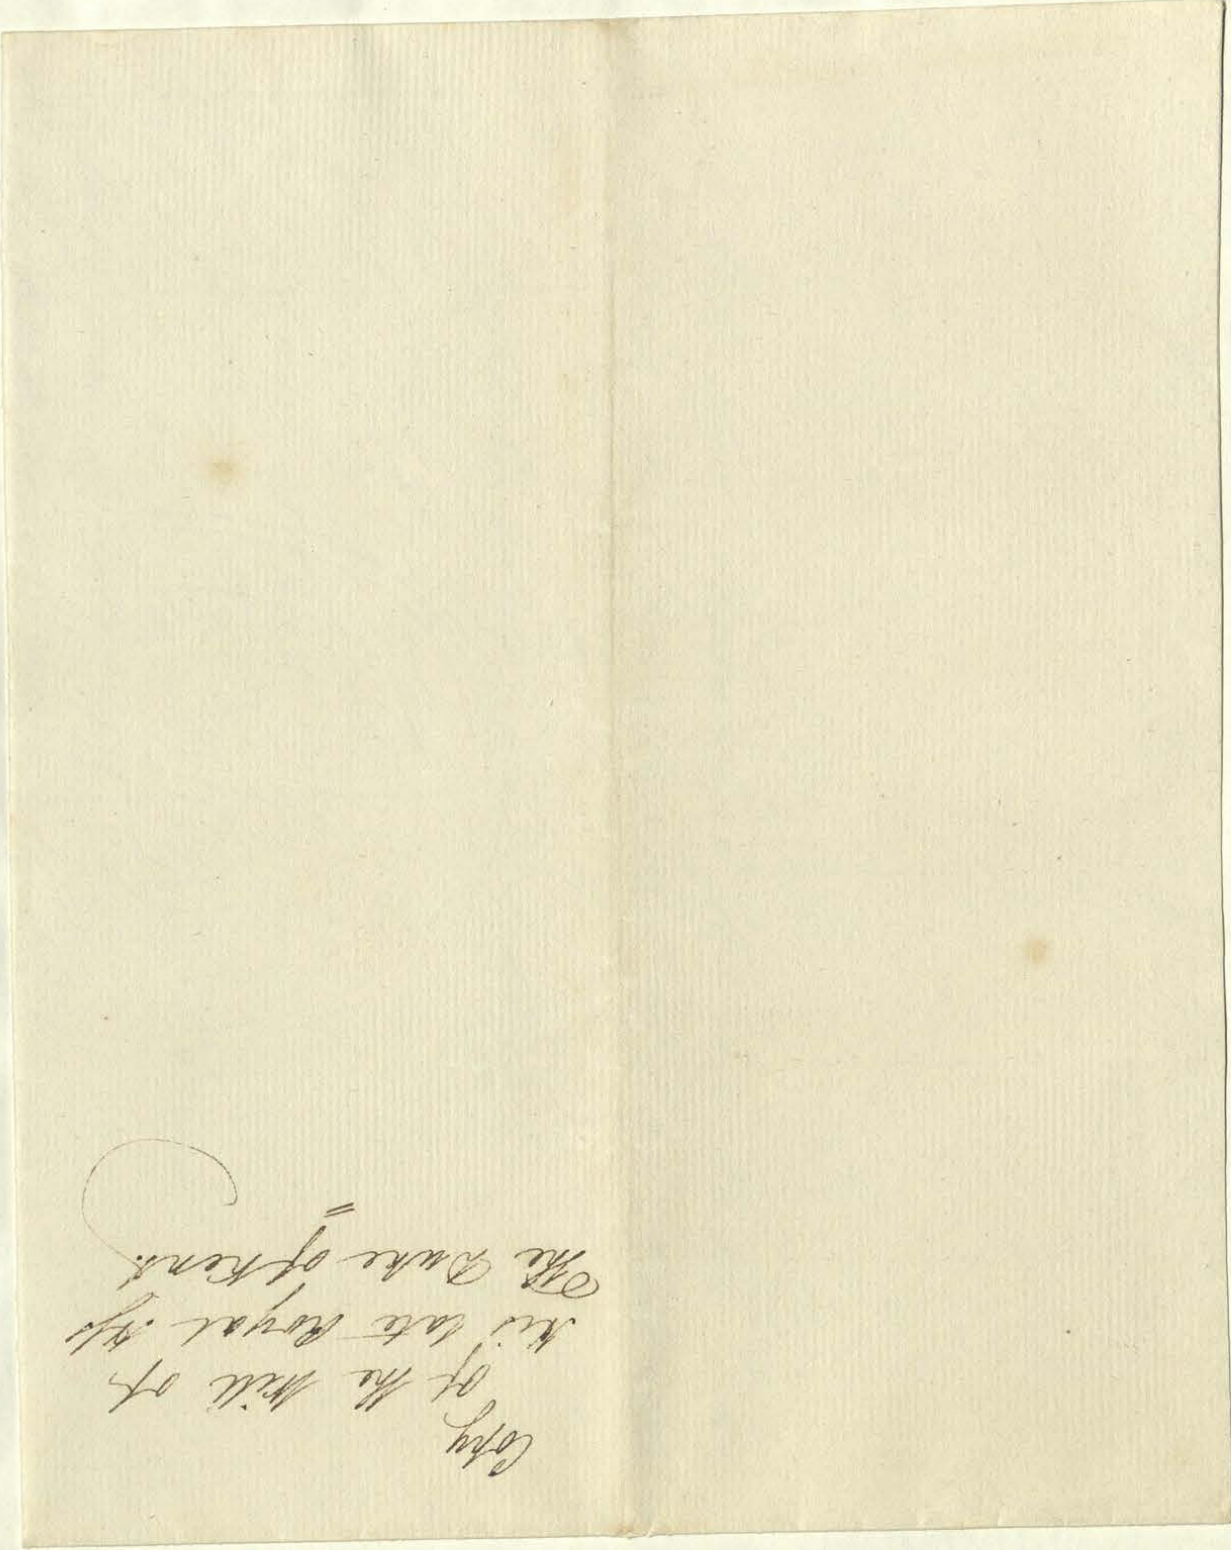 Copy
of the Will of
his late Royal Hss
The Duke of Kent.